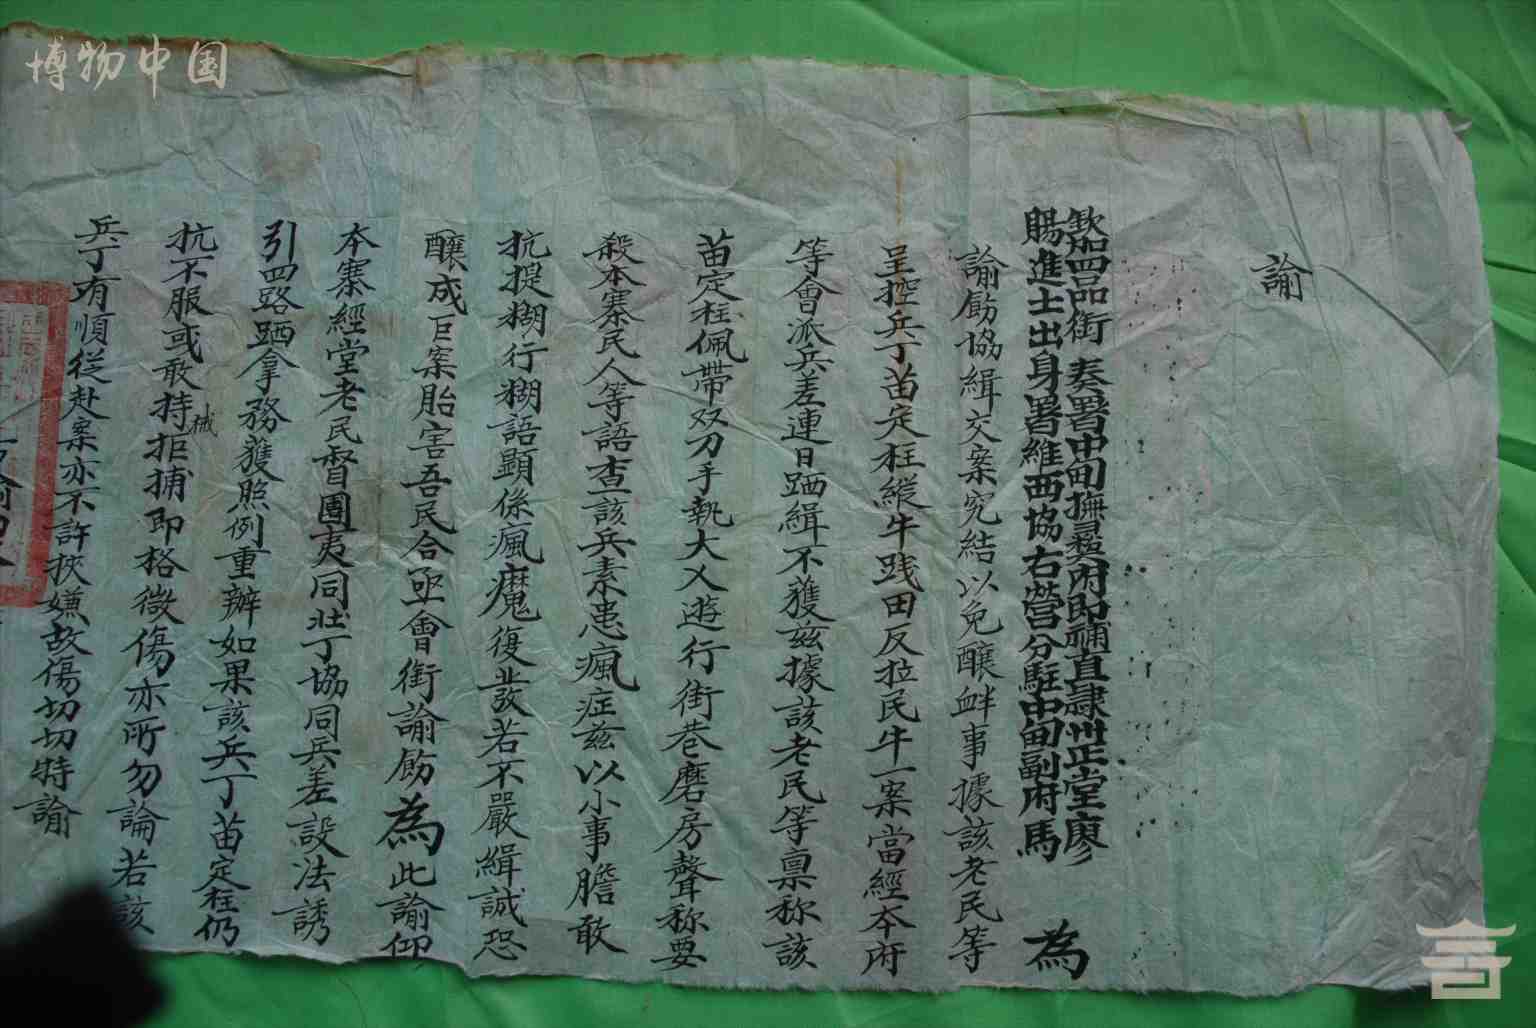 博物中国
諭
欽加四品銜 奏署中甸撫彝府即補直隷州正堂廖
賜進士出身署維西協右營分駐中甸副府馬 為
諭飭協緝交案究結以免釀衅事據該老民等
呈控兵丁苗定枉縱牛践田反拉民牛一案當經本府
等會派兵差連日跴緝不獲兹據該老民等禀称該
苗定枉佩帶双刀手執大乂遊行街巷磨房聲称要
殺本寨民人等語查該兵素患瘋症兹以小事膽敢
抗提糊行糊語顕係瘋魔復發若不嚴緝誠恐
釀成巨案胎害吾民合亟會銜諭飭為此諭仰
本寨經堂老民督團夷同壮丁協同兵差設法誘
引四路跴拿務獲照例重辦如果該兵丁苗定枉仍
抗不服或敢持械拒捕即格微傷亦所勿論若該
兵丁有順從赴案亦不許挾嫌故傷切切特諭